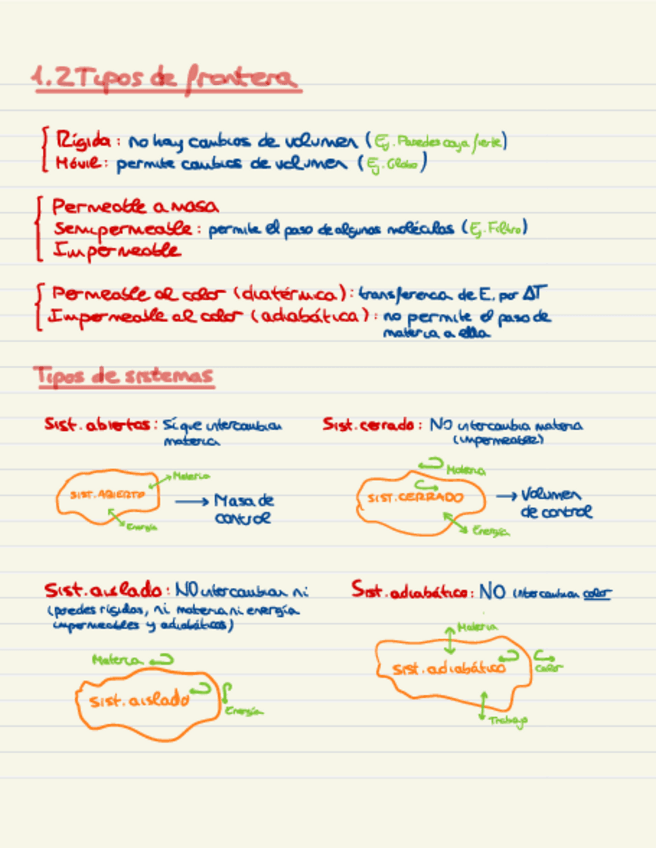 1.2 Tipos de frontera
Rígida: no hay cambios de volumen (Ej. Paredes caja fuerte)
Móvil: permite cambios de volumen (Ej. Globo)
Permeable a masa
Semipermeable: permite el paso de algunas moléculas (Ej. Filtro)
Impermeable
Permeable al calor (diatérmica): transferencia de E. por ΔT
Impermeable al calor (adiabática): no permite el paso de
materia a ella
Tipos de sistemas
Sist. abiertos: Sí que intercambian
materia
Sist. cerrado: NO intercambia materia
(impermeable)
Materia
SIST. ABIERTO
Energía
→ Masa de
control
Materia
SIST. CERRADO
Energía
→ Volumen
de control
Sist. aislado: NO intercambian ni
(paredes rígidas, ni materia ni energía
impermeables y adiabáticas)
Sist. adiabático: NO intercambian calor
Materia
Sist. aislado
Energía
Materia
Sist. adiabático
Calor
Trabajo